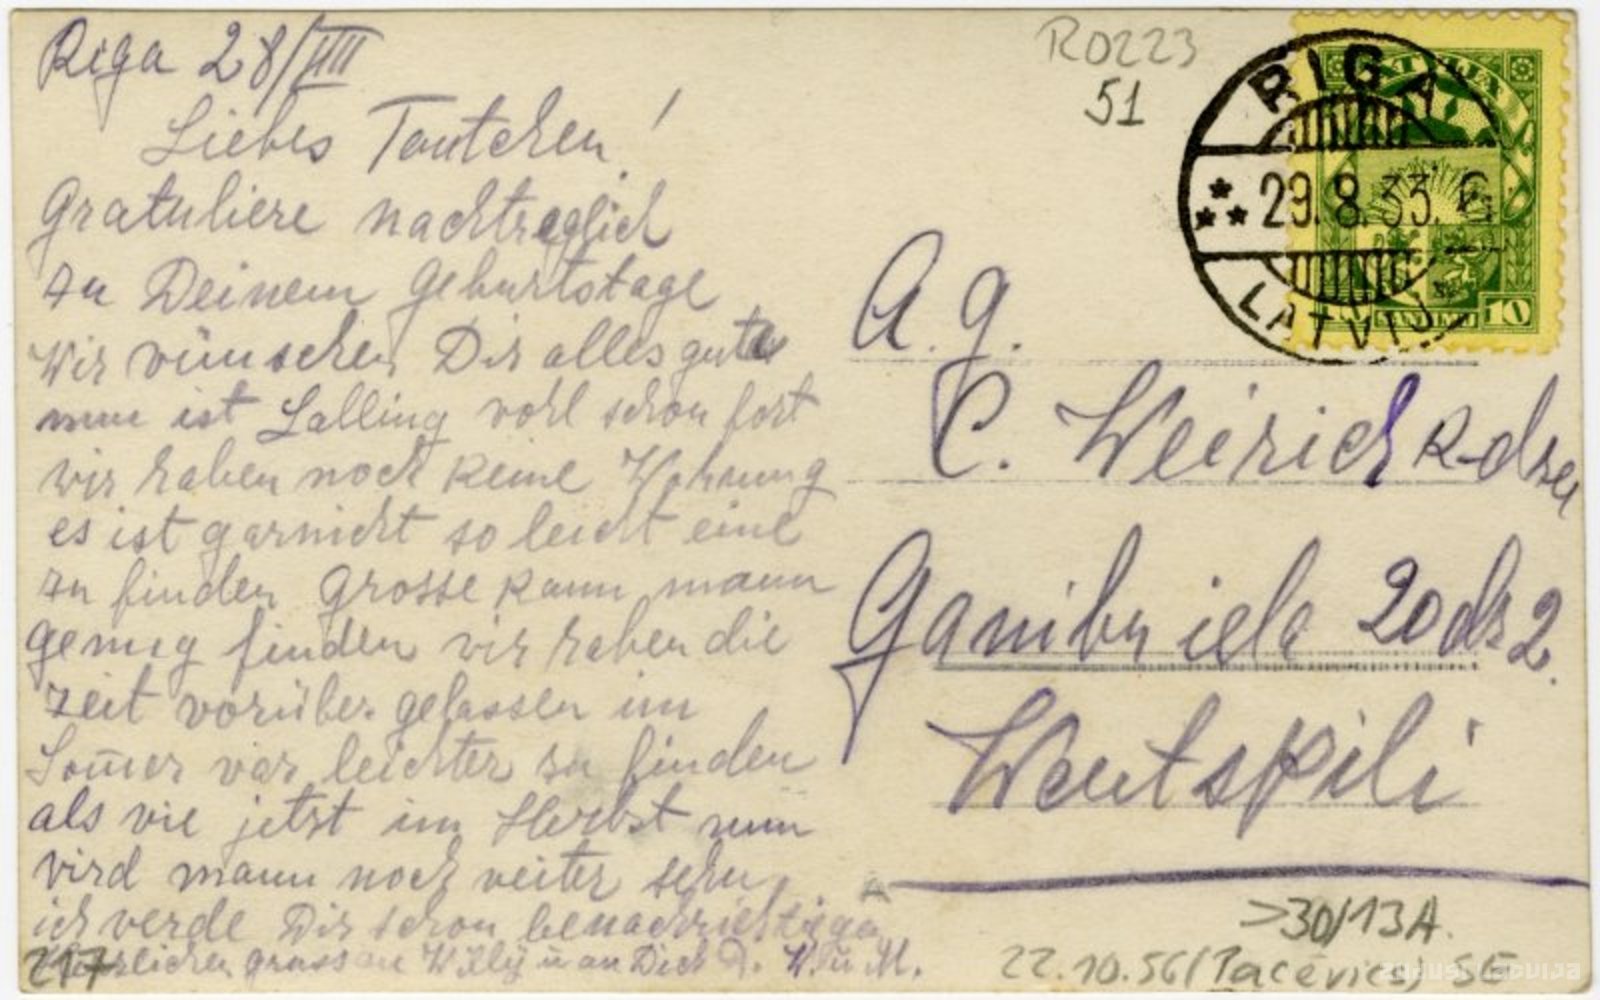 Riga 28/VIII
Liebes Tantchen!
Gratuliere nachtreglich
zu Deinem Geburtstage
Wir vünschen Dir alles gute
nun ist Lalling vohl schon fort
wir haben noch keine Wohnung
es ist garnicht so leicht eine
zu finden Grosse kann mann
genug finden vir haben die
Zeit vorüber gelassen im
Som̄er var leichter zu finden
als vie jetzt im Herbst nun
vird mann noch veiter sehn
ich verde Dir schon benachrichtigen
Herzlichen gruss an Willy u an Dich D. W. u M.
217
R0223
51
RIGA
29.8.33. G
LATVIJA
LATVIJA
10 SANTIMU 10
A. g.
C. Weirich k-dze
Ganibu iela 20 dz 2.
Wentspili
>30/13A.
22.10.56 (Pacēvičs) SE
zudusilatvija